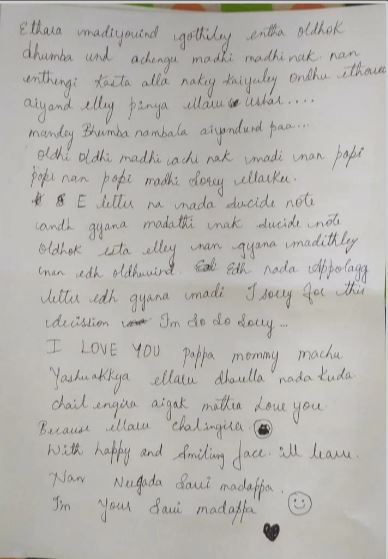 Ethara madiyouind gothiley entha oldhok
dhumba und achenga madhi madhi nak. nan
enthengi Kasta alla nakey Kaiyuley ondhu ethara
aiyand elley pinya ellaru ushar....
mandey Bhumba nambala aiyandurd paa...
Oldhi Oldhi madhi achi nak madi nan papi
papi nan papi madhi Sorey ellarku.
E letter na nada Sucide note
andh gyana madathi nak sucide note
Oldhok ista elley nan gyana madithley
nan edh oldhuvind. Edh nada Appolagg
letter edh gyana madi I sorry for this
decission I'm So So Sorry...
I LOVE YOU pappa mommy macha
Yashuakkya ellaru dhaulla nada Kuda
chail engira aigak mathra Love you
Because ellaru chalingira.
With happy and Smiling face ill leave.
Nan Nugada Savi madappa.
I'm Your Savi madappa